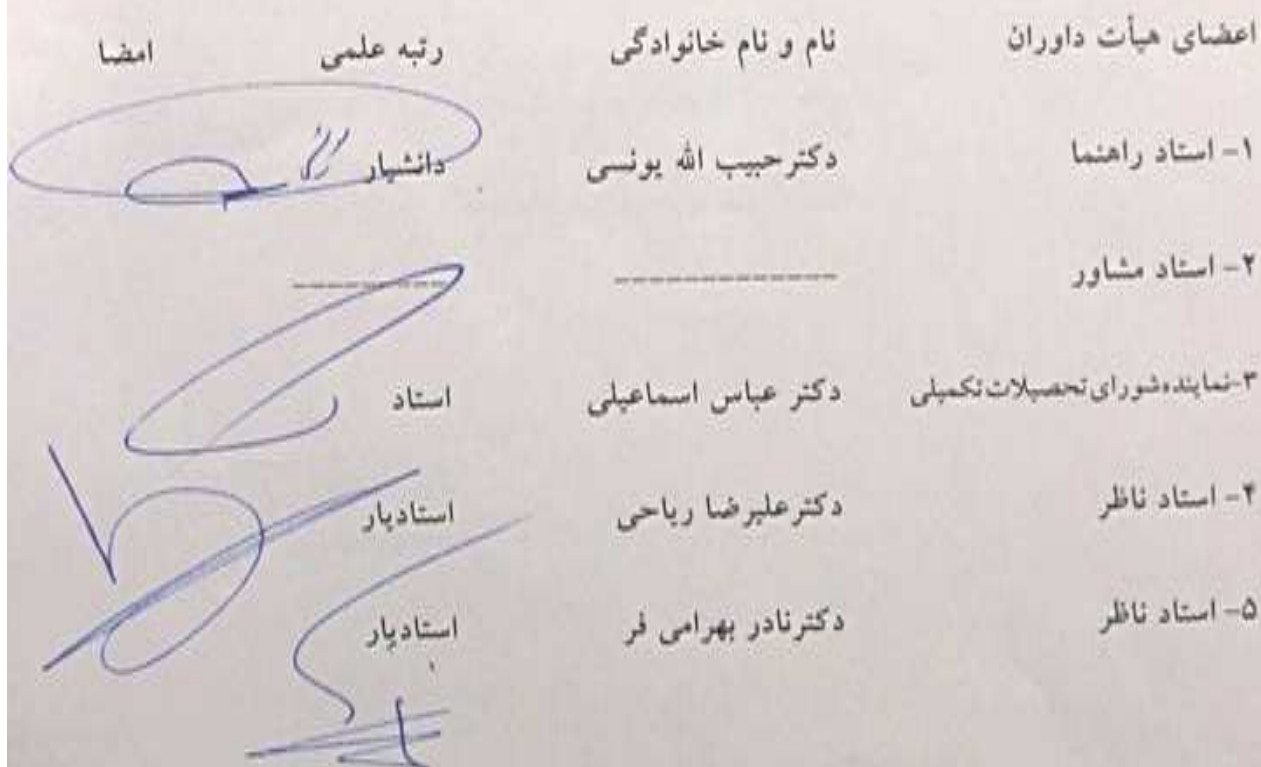 اعضای هیأت داوران نام و نام خانوادگی رتبه علمی امضا
۱- استاد راهنما دکترحبیب الله یونسی دانشیار
۲- استاد مشاور ---------------- -----------
۳-نماینده‌شورای‌تحصیلات‌تکمیلی دکتر عباس اسماعیلی استاد
۴- استاد ناظر دکترعلیرضا ریاحی استادیار
۵- استاد ناظر دکترنادر بهرامی فر استادیار